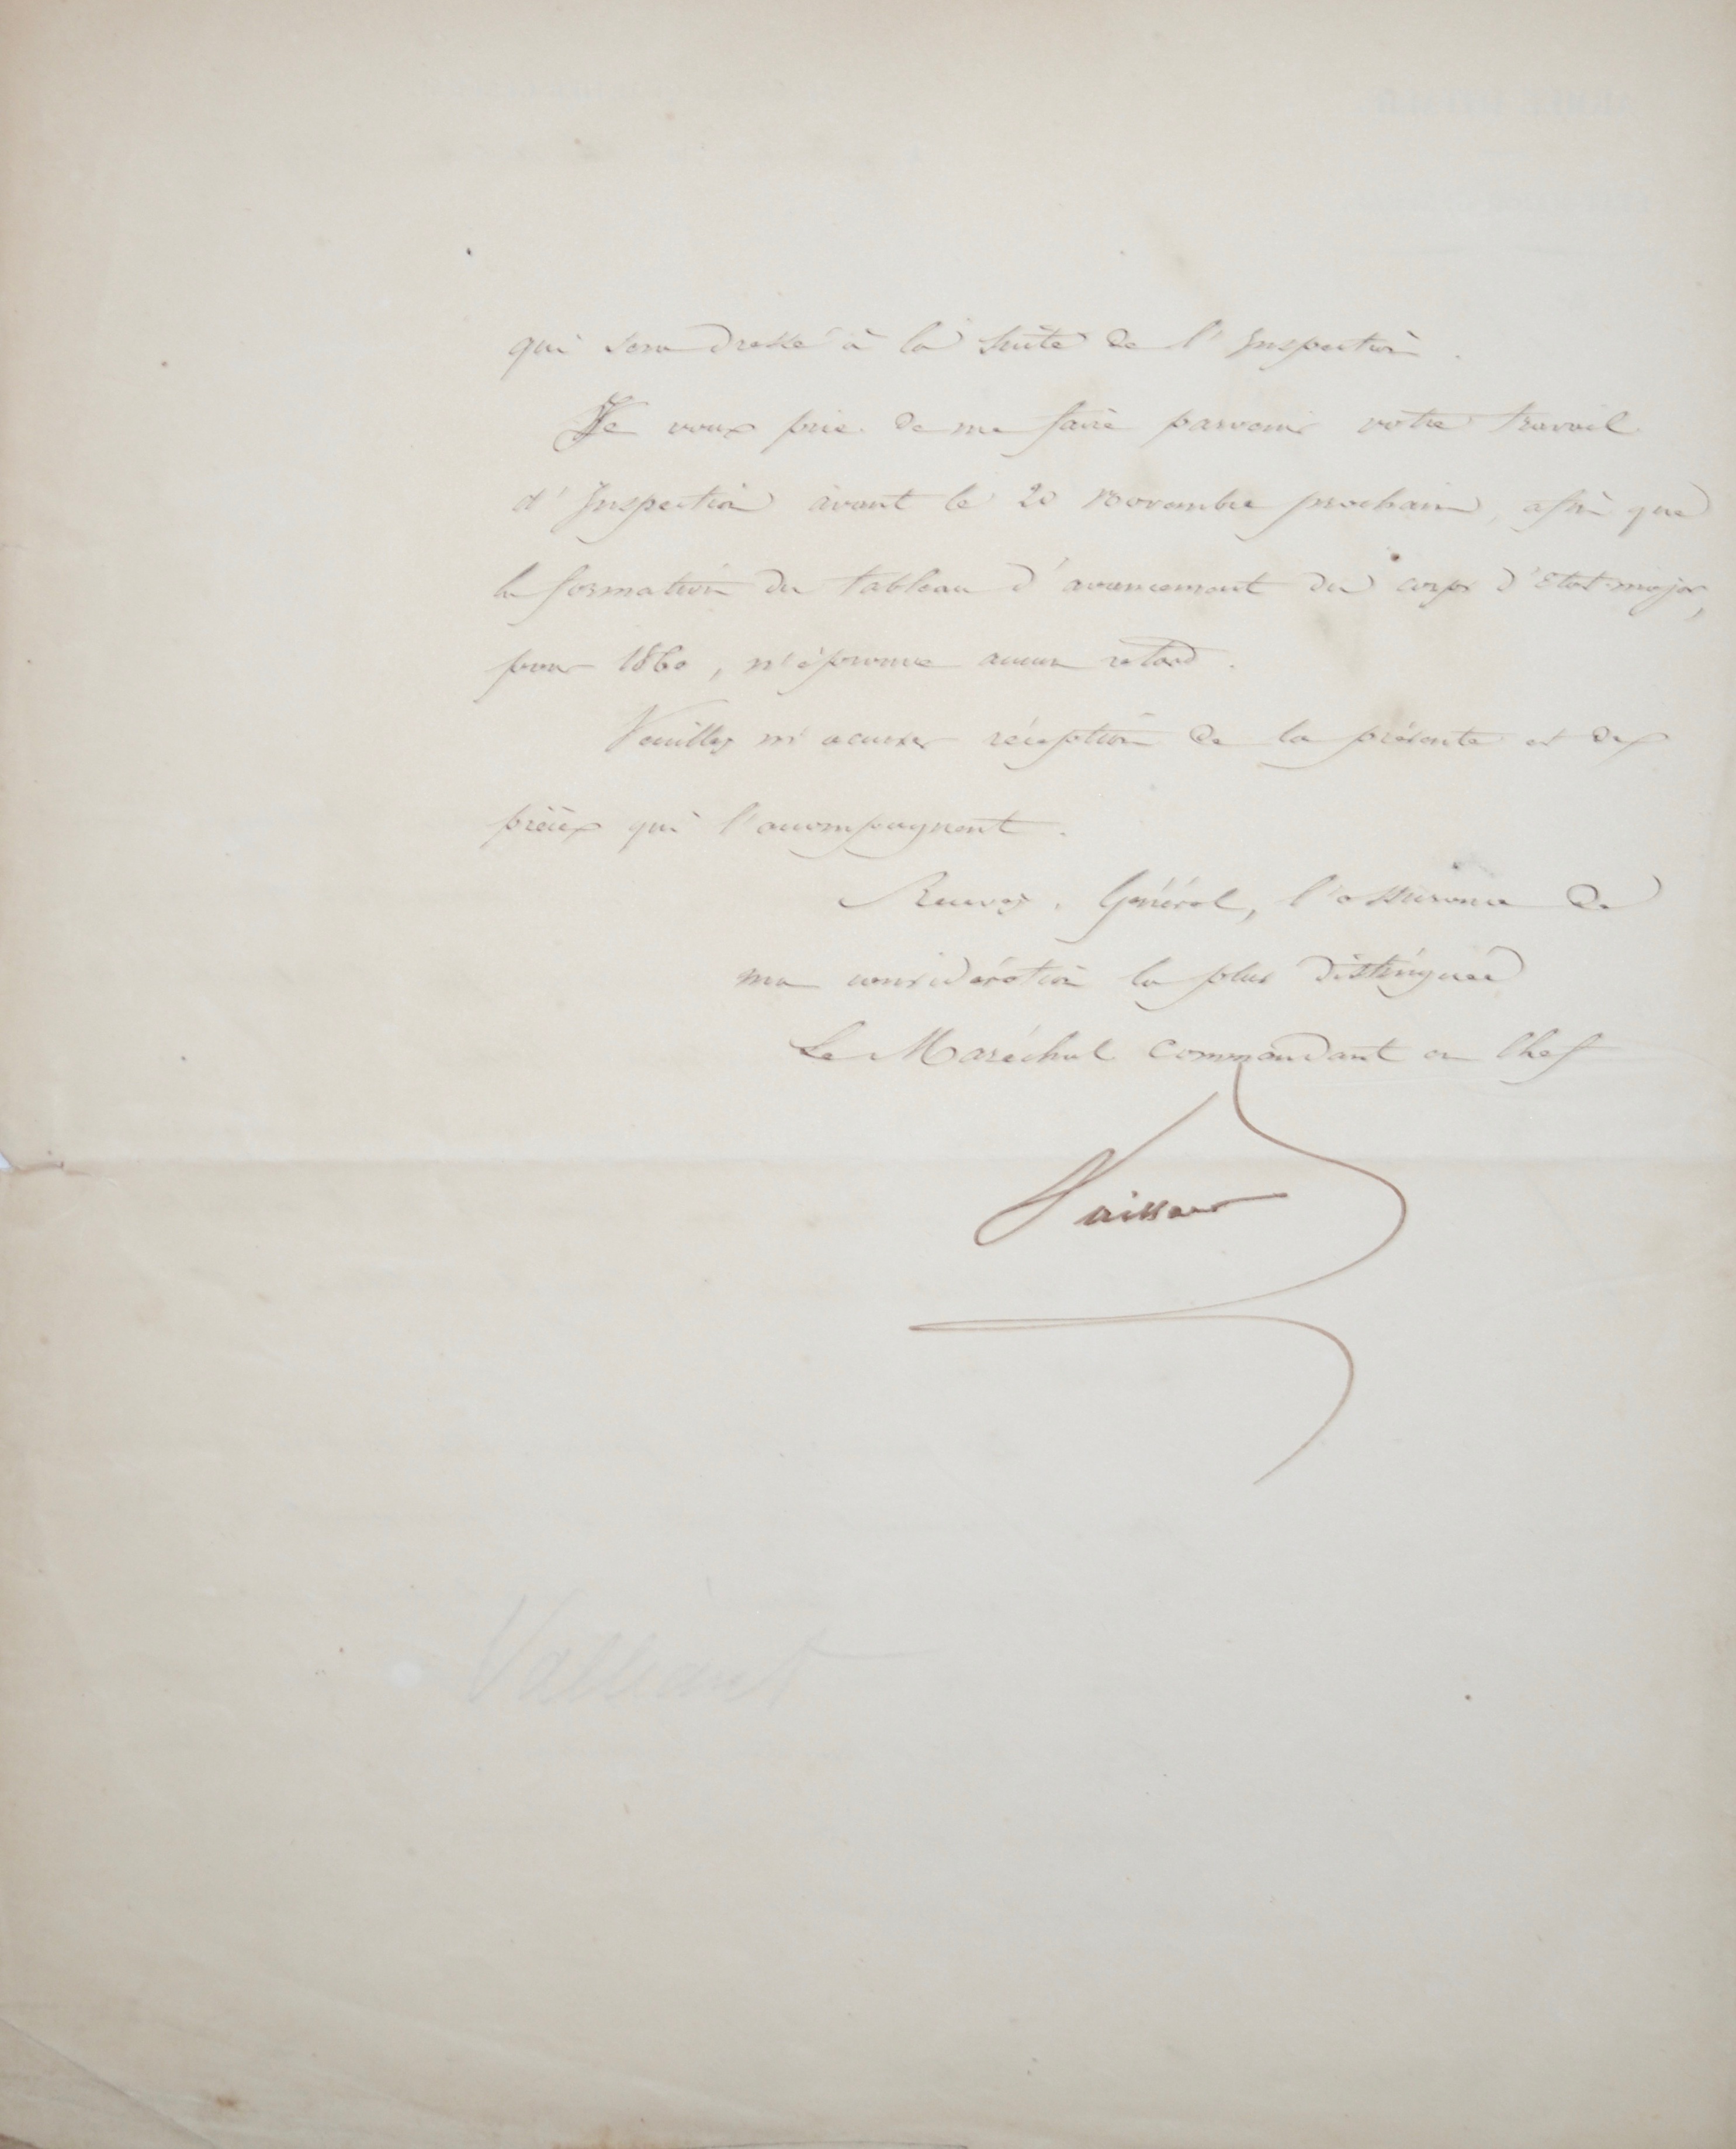 qui sera dressé à la suite de l'Inspection.
Je vous prie de me faire parvenir votre travail
d'Inspection avant le 20 novembre prochain, afin que
la formation du tableau d'avancement du corps d'Etat-major,
pour 1860, n'éprouve aucun retard.
Veuillez m'accuser réception de la présente et des
pièces qui l'accompagnent.
Recevez, Général, l'assurance de
ma considération la plus distinguée
Le Maréchal commandant en Chef
Vaillant
Vaillant